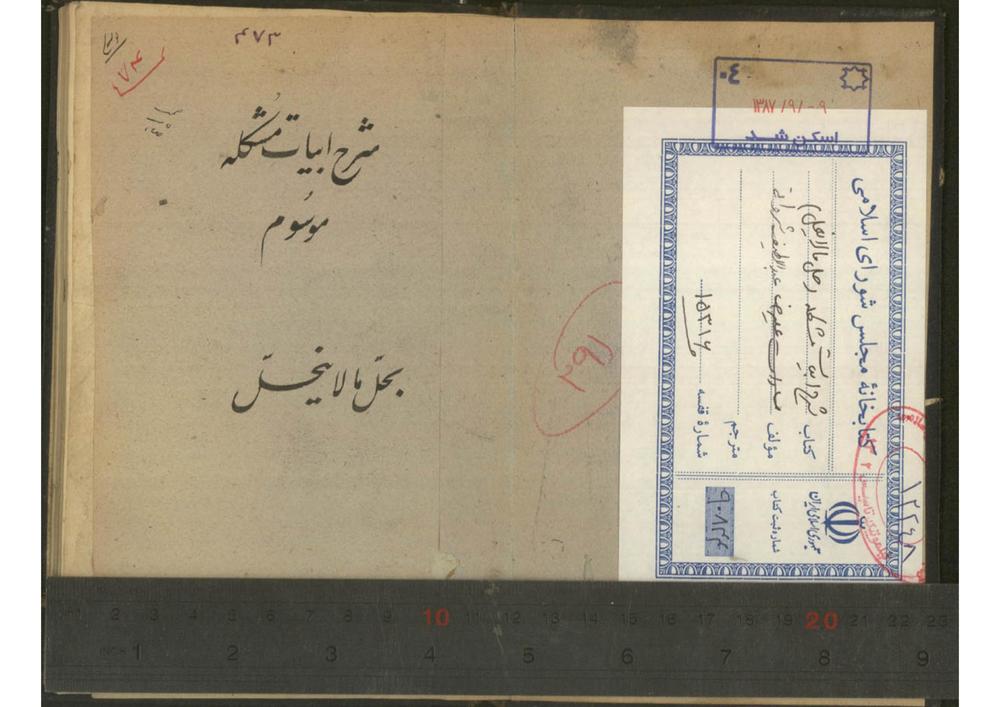 ۴۷۳
۸۴
شرح ابیات مشکله
موسوم
بحل ما لا ینحل
۲۹۱
۰۴
۱۳۸۷/۹/۰۹
اسکن شد
کتابخانهٔ مجلس شورای اسلامی
کتاب شرح ابیات مشکله (حل ما لا ینحل)
مؤلف
مترجم
شمارهٔ قفسه ۱۵۳۱۶
جمهوری اسلامی ایران
شماره ثبت کتاب
۹۰۸۴۴
۱۲۲۴۸
1 2 3 4 5 6 7 8 9 10 11 12 13 14 15 16 17 18 19 20 21 22 23
INCH 1 2 3 4 5 6 7 8 9